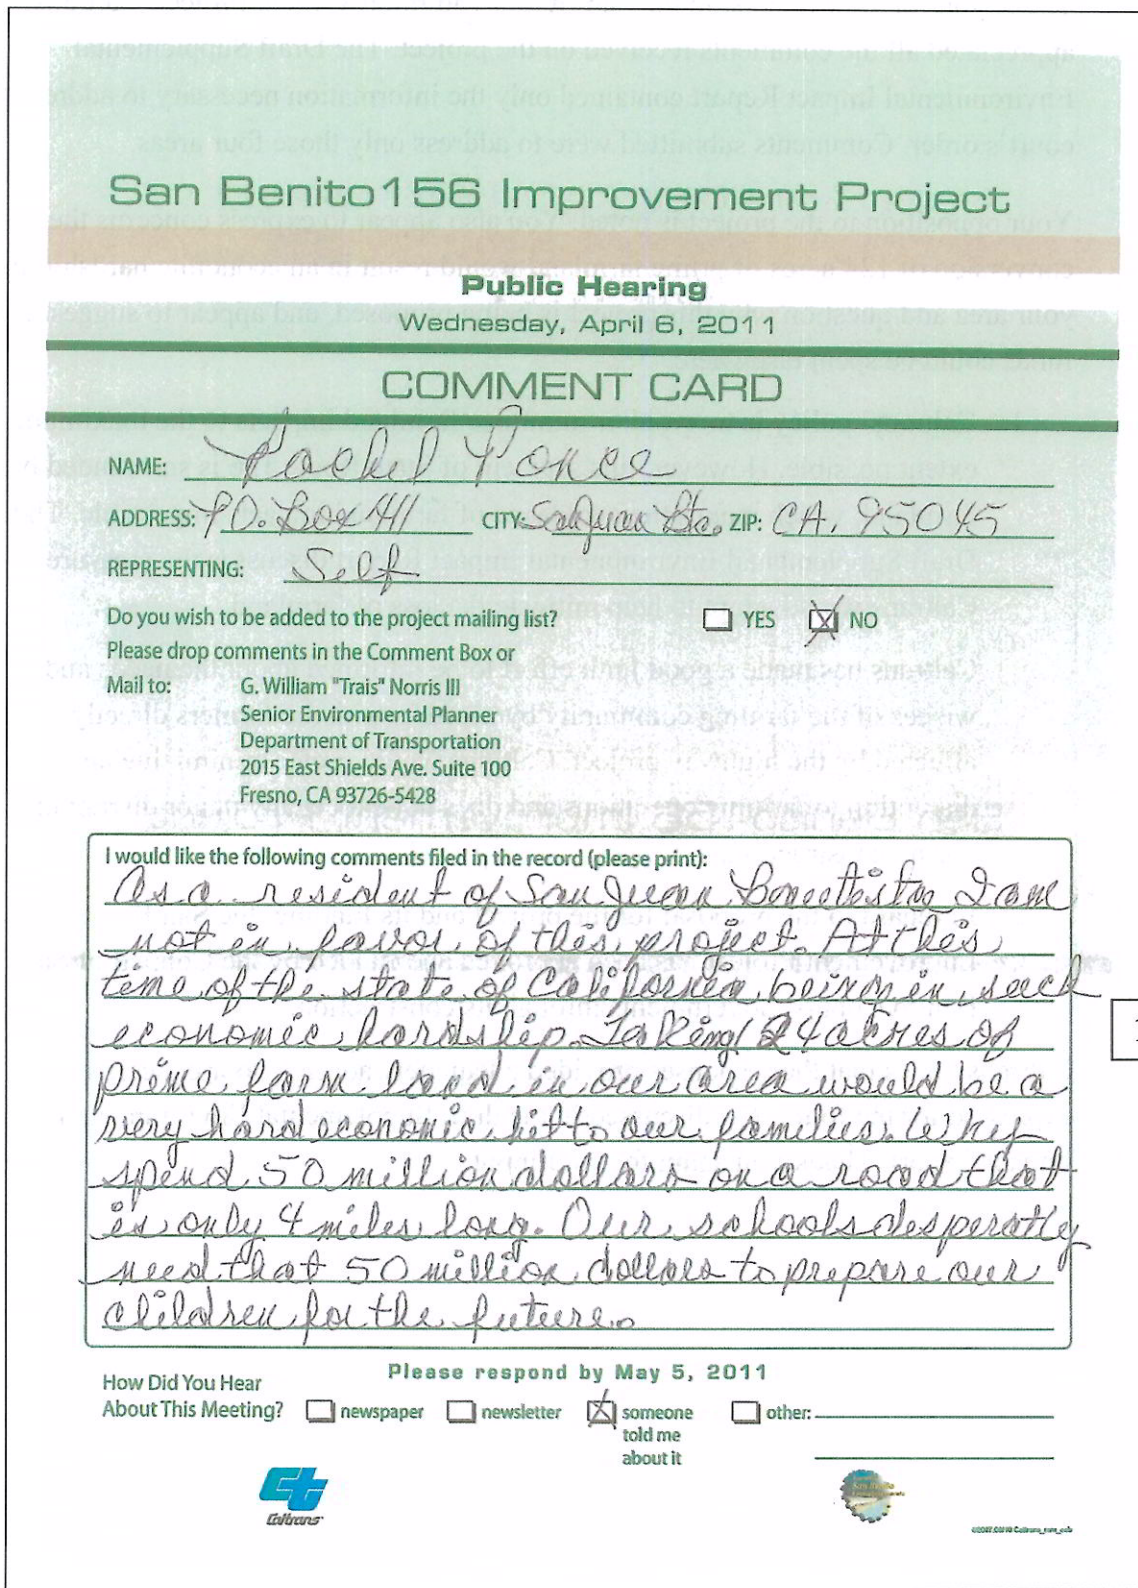 San Benito 156 Improvement Project
Public Hearing
Wednesday, April 6, 2011
COMMENT CARD
NAME: Rachel Ponce
ADDRESS: P.O. Box 411 CITY: San Juan Bta. ZIP: CA. 95045
REPRESENTING: Self
Do you wish to be added to the project mailing list? YES NO
Please drop comments in the Comment Box or
Mail to: G. William "Trais" Norris III
Senior Environmental Planner
Department of Transportation
2015 East Shields Ave. Suite 100
Fresno, CA 93726-5428
I would like the following comments filed in the record (please print):
As a resident of San Juan Bautista I am
not in favor of this project. At this
time of the state of California being in such
economic hardship. Taking 24 acres of
prime farm land in our area would be a
very hard economic hit to our families. Why
spend 50 million dollars on a road that
is only 4 miles long. Our schools desperatly
need that 50 million dollars to prepare our
children for the future.
Please respond by May 5, 2011
How Did You Hear
About This Meeting? newspaper newsletter someone other:
told me
about it
Caltrans